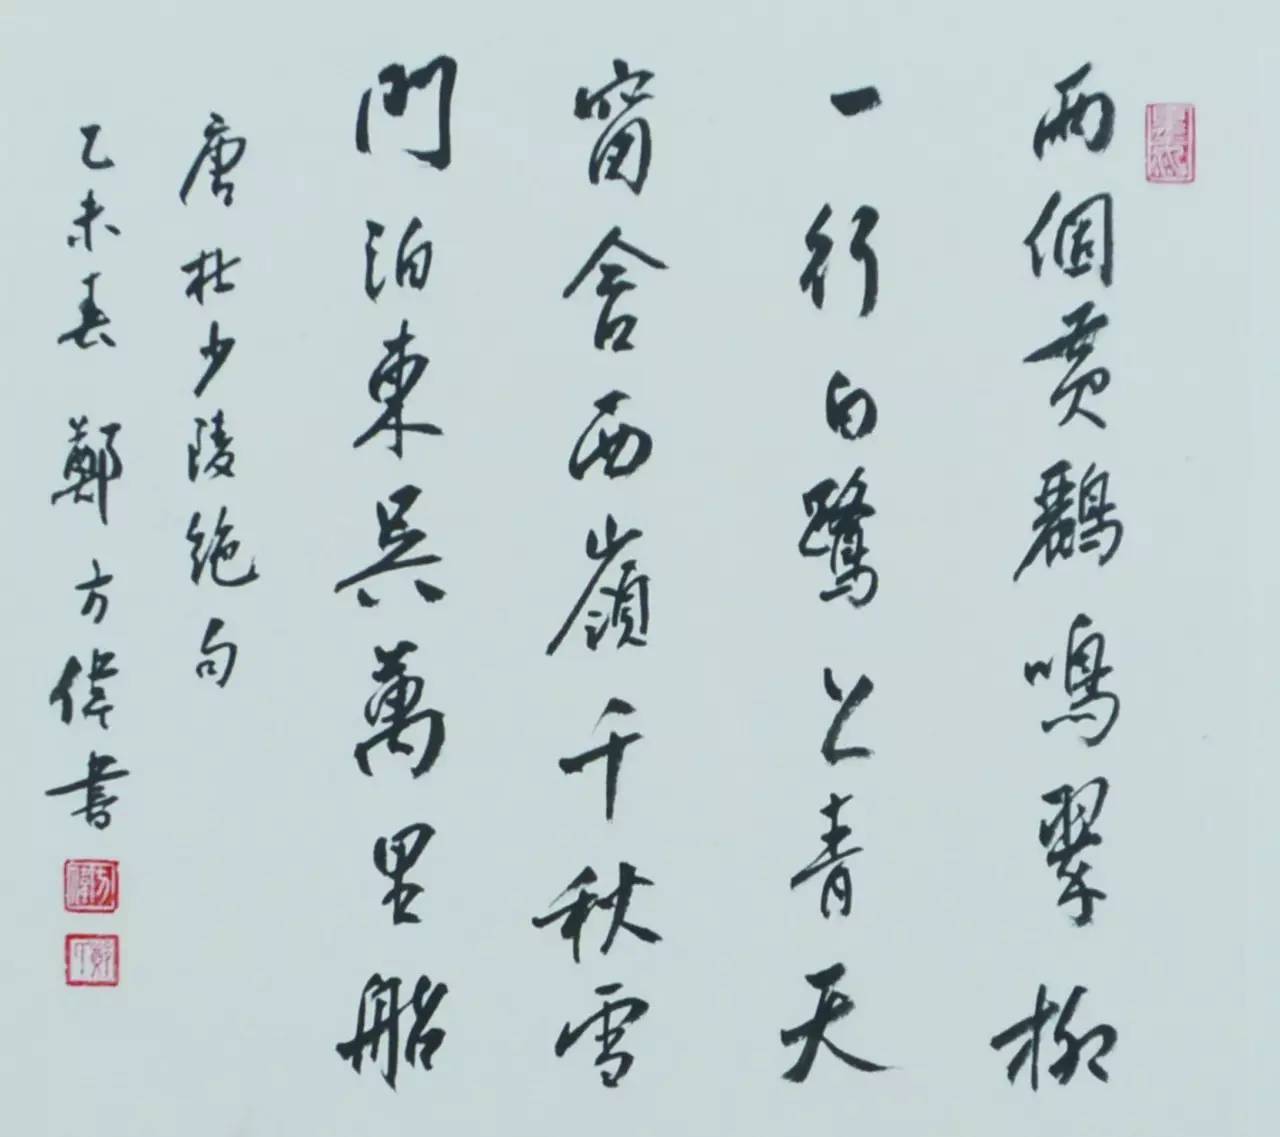 兩個黃鸝鳴翠柳
一行白鷺上青天
窗含西嶺千秋雪
門泊東吳萬里船
唐杜少陵絕句
乙未春鄭方偉書